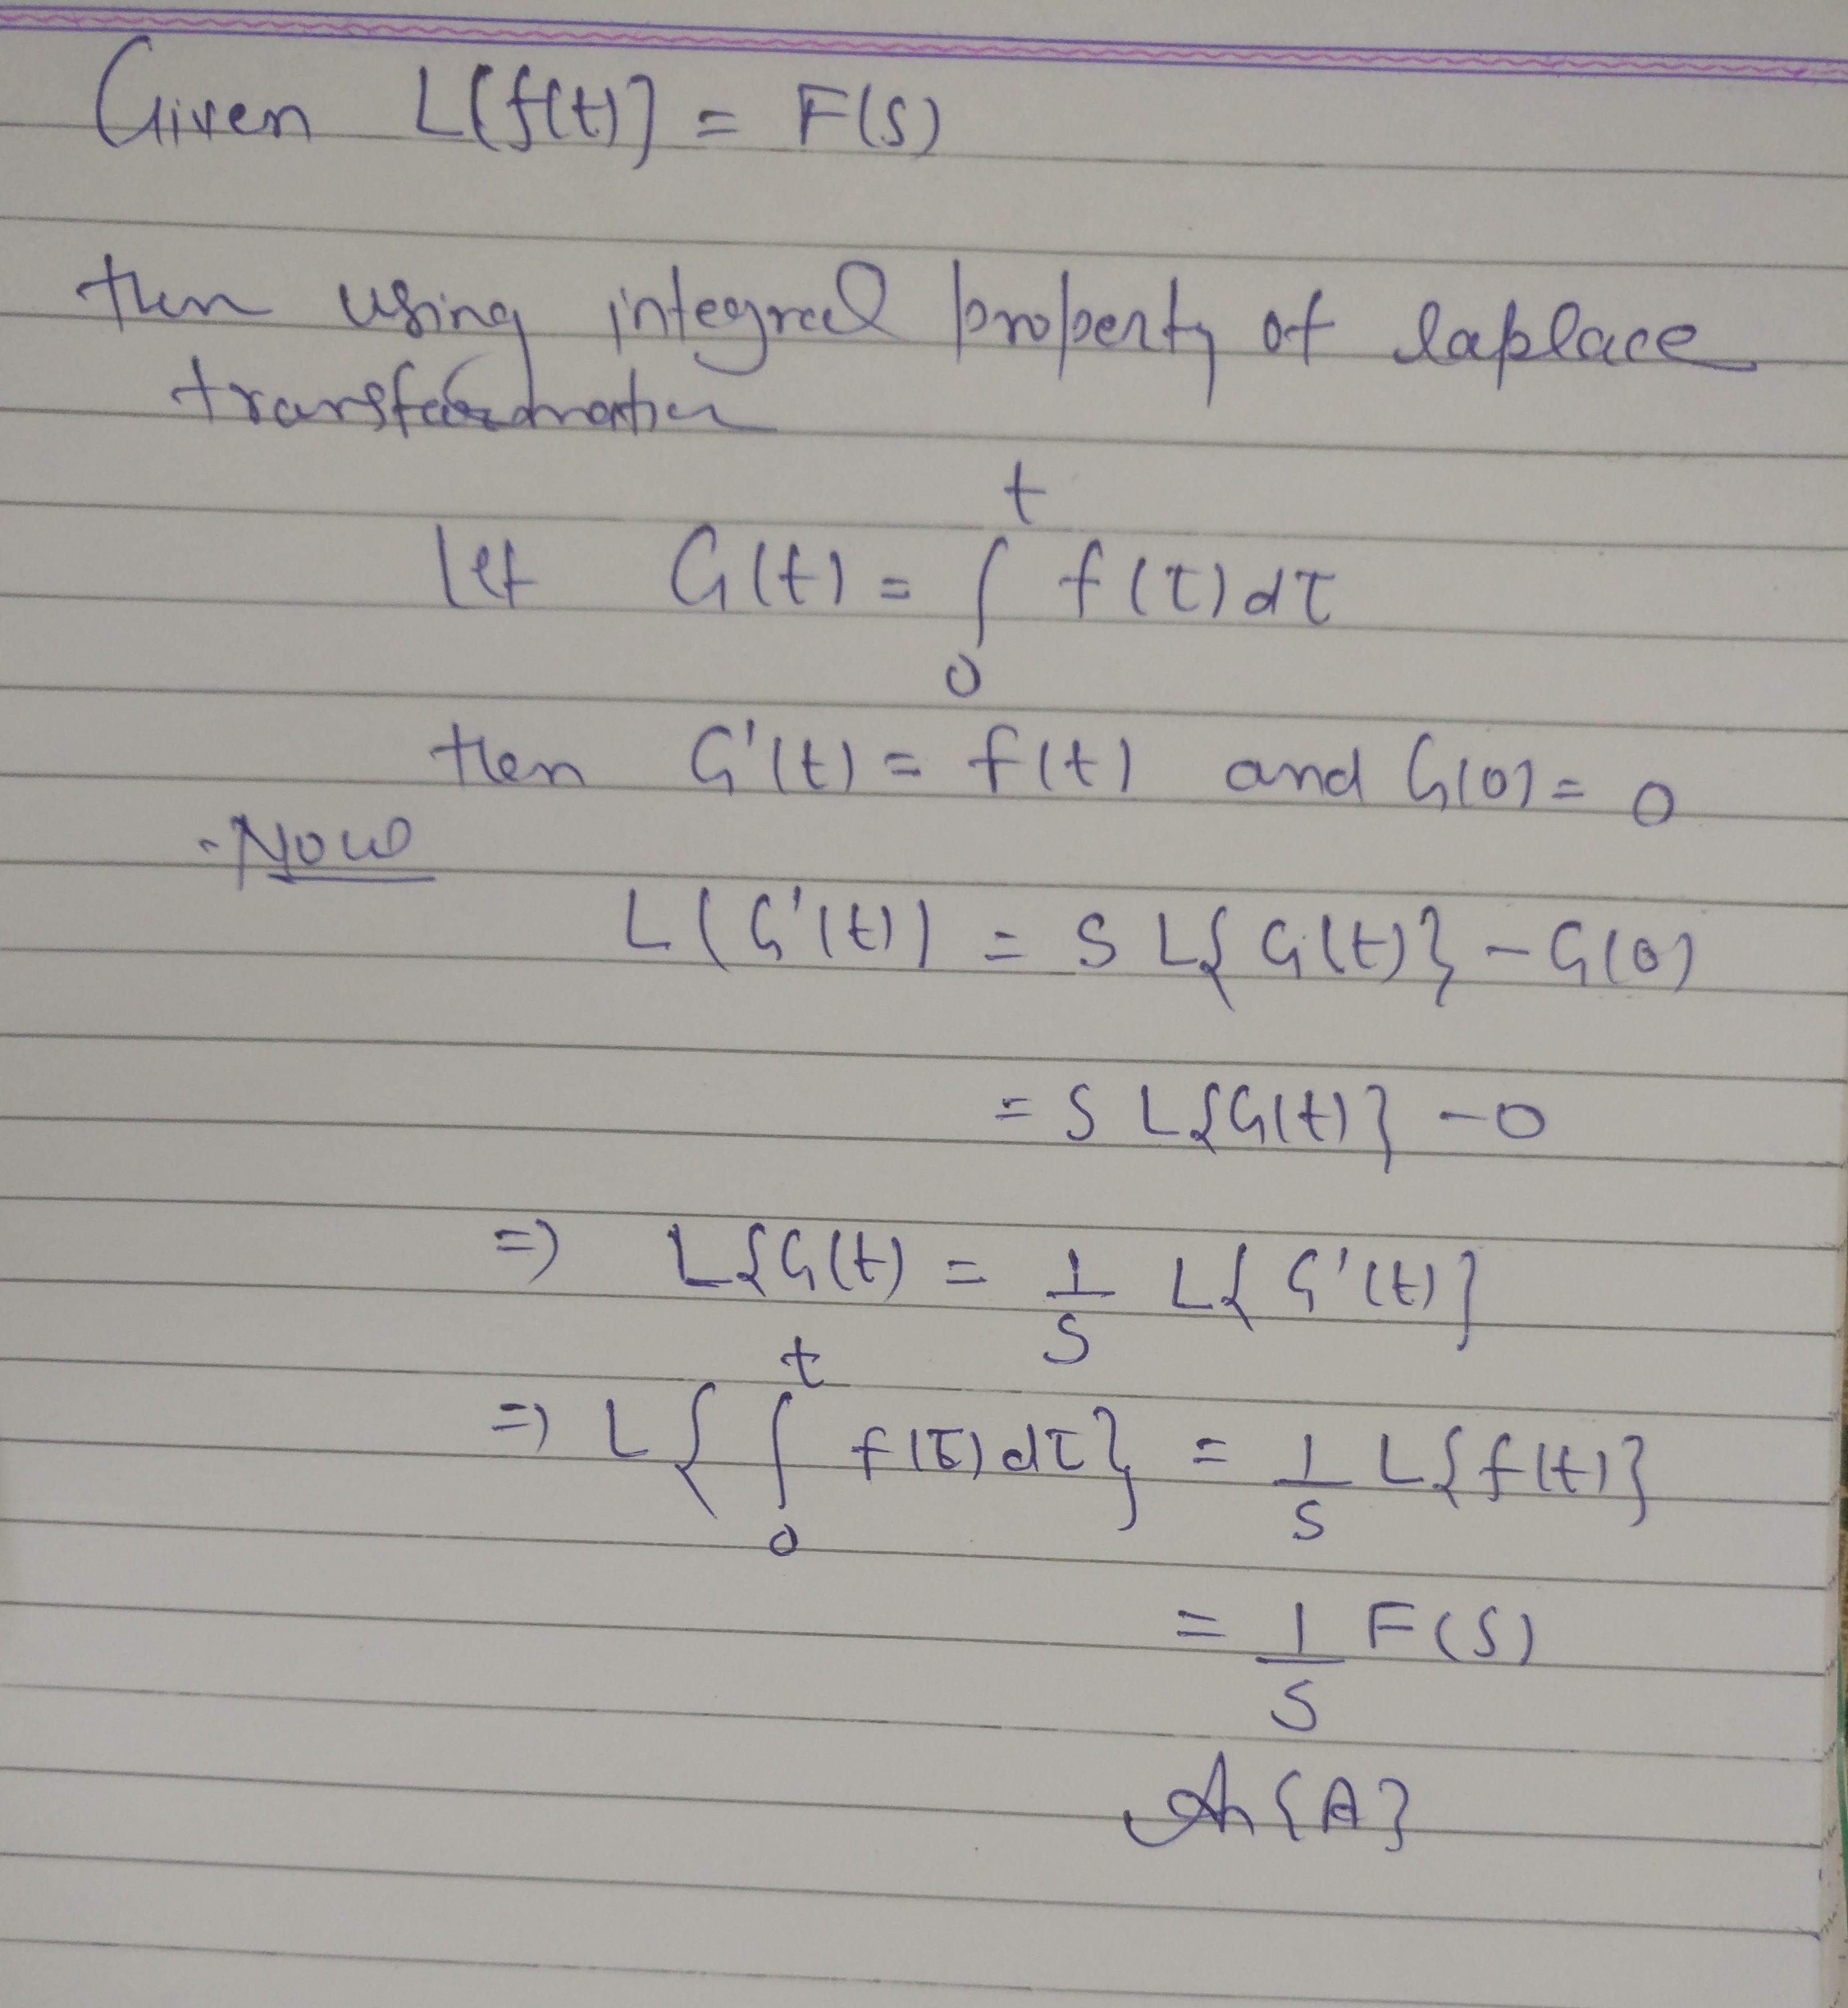 Given L[f(t)] = F(S)
then using integral property of laplace
transformation
t
let G(t) = ∫ f(τ)dτ
0
then G'(t) = f(t) and G(0) = 0
Now
L(G'(t)) = S L{G(t)} - G(0)
= S L{G(t)} - 0
=> L{G(t) = 1/S L{G'(t)}
t
=> L{∫ f(τ)dτ} = 1/S L{f(t)}
0
= 1/S F(S)
An {A}